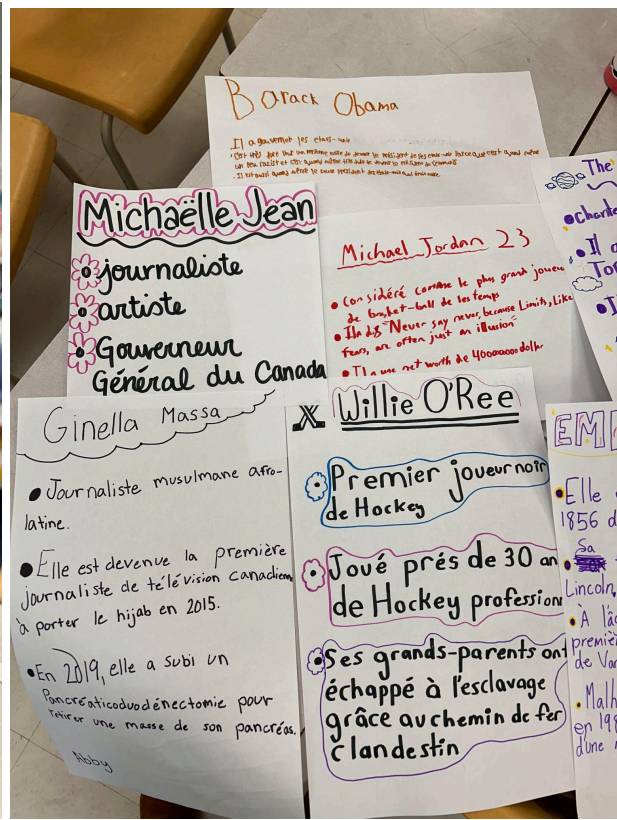 Barack Obama
Il a gouverner les etats-unis
un peu raciste et c'est quand même très dure de devenir le président
. Il est aussi quand même le seule président des états-unis
Michaëlle Jean
journaliste
artiste
Gouverneur
Général du Canada
Michael Jordan 23
• Considéré comme le plus grand joueur
de basket-ball de les temps
• Il a dis "Never say never, because Limits, Like
fears, are often just an illusion"
• Il a une net worth de 4000000000 dollar
The
• chante
• Il a
Tor
• I
Ginella Massa
• Journaliste musulmane afro-
latine.
• Elle est devenue la première
journaliste de télévision canadienne
à porter le hijab en 2015.
• En 2019, elle a subi un
Pancréaticoduodénectomie pour
retirer une masse de son pancréas.
Abby
X Willie O'Ree
• Premier joueur noir
de Hockey
• Joué prés de 30 an
de Hockey profession
• Ses grands-parents ont
échappé à l'esclavage
grâce au chemin de fer
clandestin
EM
• Elle
1856 d
Sa
Lincoln,
• À l'âg
premièr
de Van
• Malh
en 198
d'une